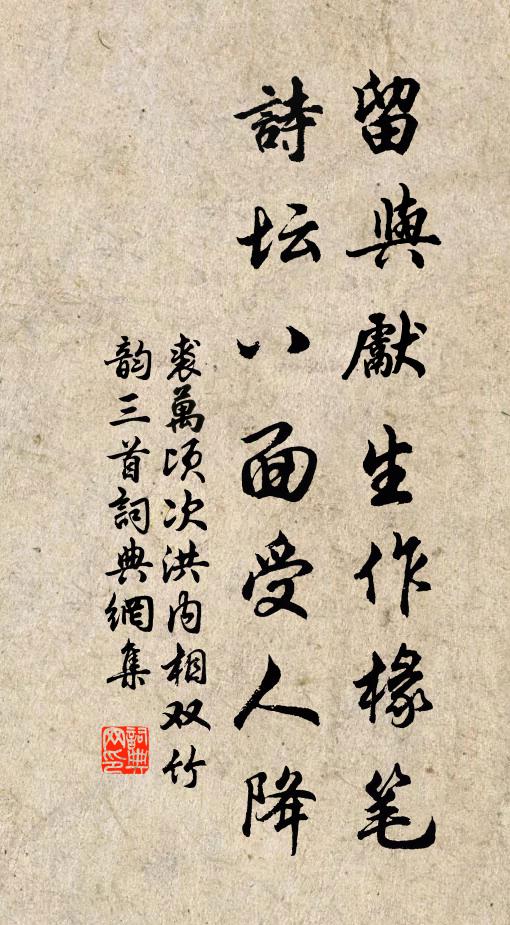 留與獻生作椽笔
詩坛八面受人降
裘萬頃次洪内相双竹
韵三首詞典網集
詞典网印